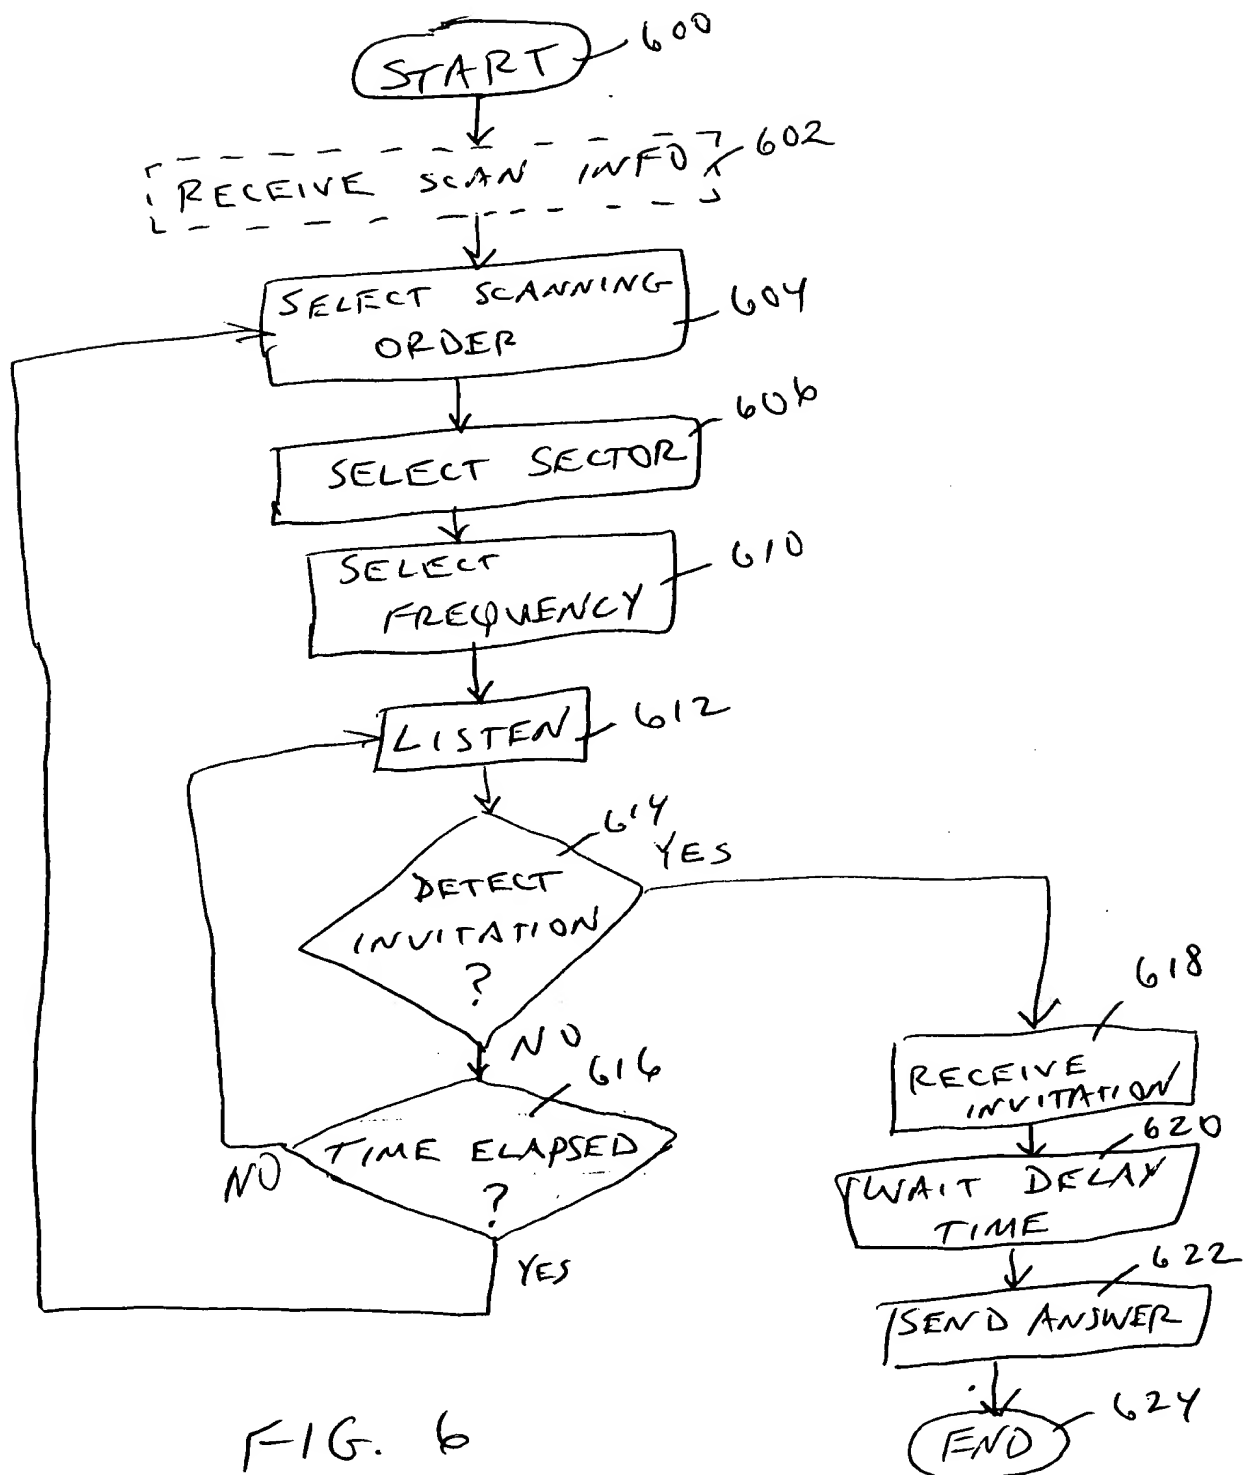 START 600
RECEIVE SCAN INFO 602
SELECT SCANNING
ORDER
604
SELECT SECTOR
606
SELECT
FREQUENCY
610
LISTEN 612
614
DETECT
INVITATION
?
YES
NO
616
TIME ELAPSED
?
NO
YES
618
RECEIVE
INVITATION
620
WAIT DELAY
TIME
622
SEND ANSWER
END 624
FIG. 6